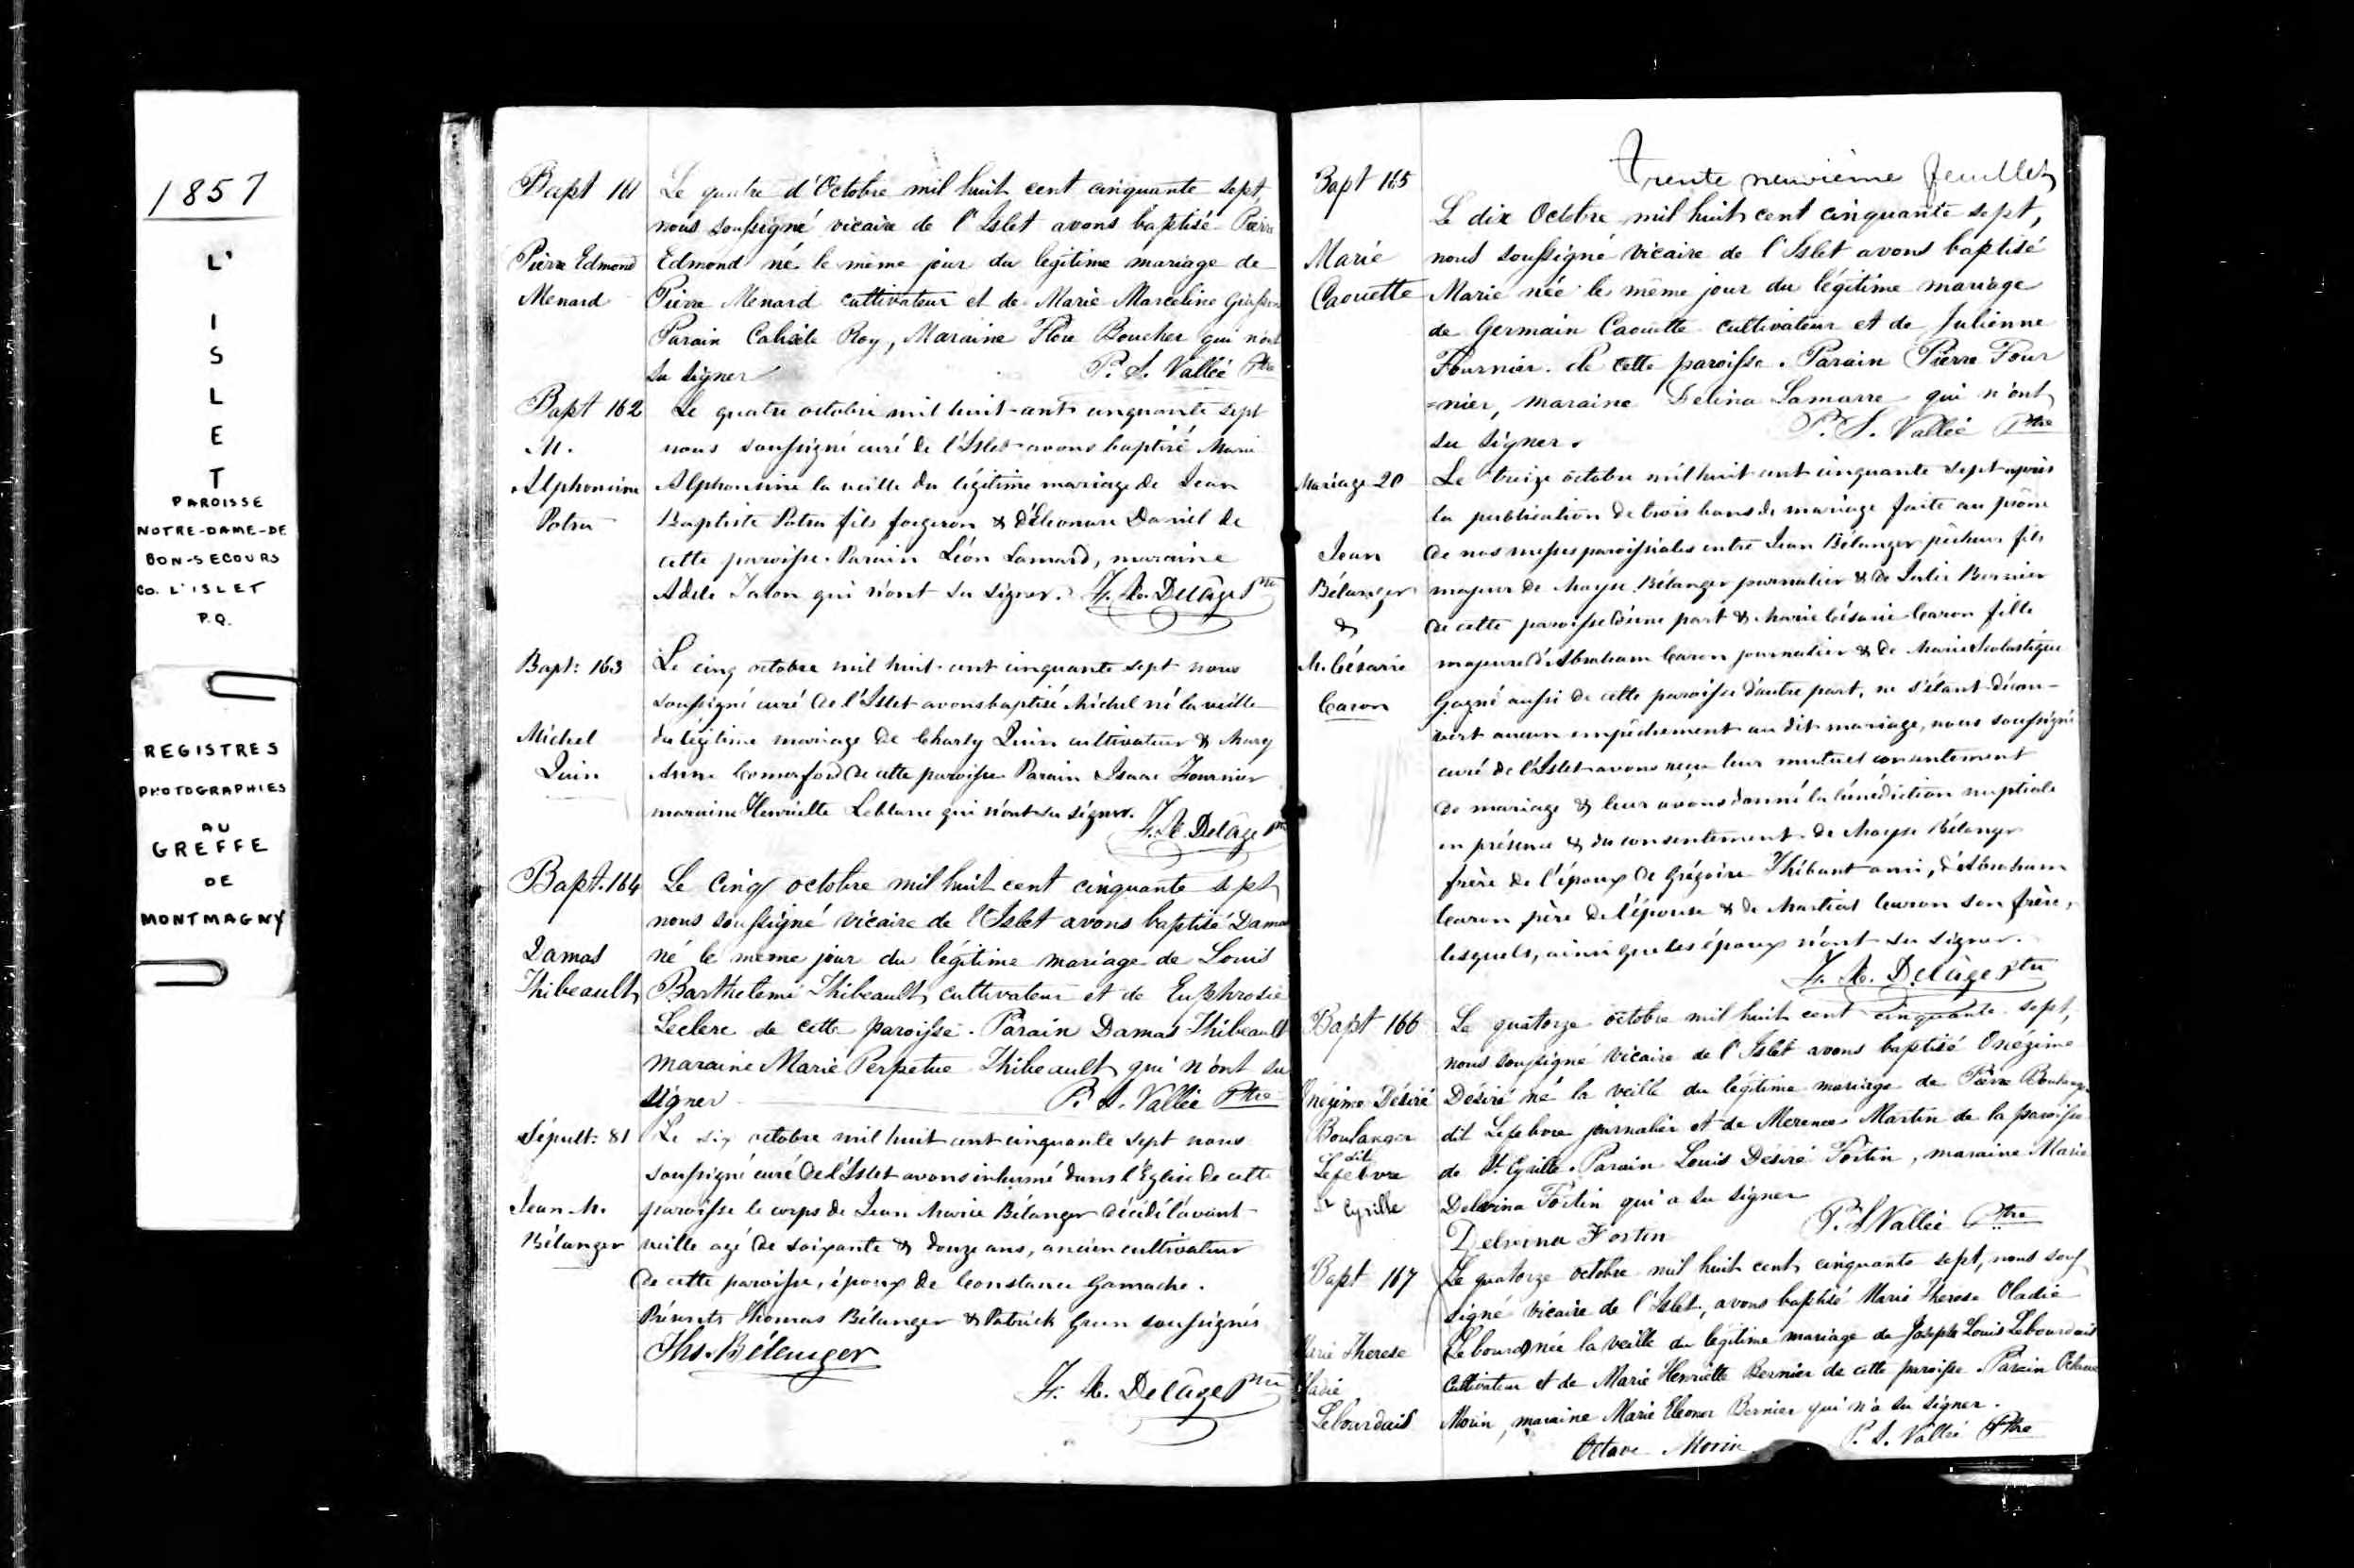 1857
L'
I
S
L
E
T
PAROISSE
NOTRE-DAME-DE
BON-SECOURS
Co. L'ISLET
P.Q.
REGISTRES
PHOTOGRAPHIES
AU
GREFFE
DE
MONTMAGNY
Bapt 161
Pierre Edmond
Menard
Le quatre d'Octobre mil huit cent cinquante sept,
nous soussigné vicaire de l'Islet avons baptisé Pierre
Edmond né le même jour du legitime mariage de
Pierre Menard cultivateur et de Marie Marceline
Parain Calixte Roy, Maraine Flore Boucher qui n'ont
su signer P. S. Vallée Ptre
Bapt 162
M.
Alphonsine
Potra
Le quatre octobre mil huit-cent cinquante sept
nous soussigné curé de l'Islet avons baptisé Marie
Alphonsine la veille du légitime mariage de Jean
Baptiste Potra fils forgeron & d'Eléonore Daniel de
cette paroisse. Parain Léon Lamard, maraine
Adele qui n'ont su signer. F. X. Delâge Ptre
Bapt: 163
Michel
Quin
Le cinq octobre mil huit-cent cinquante sept nous
soussigné curé de l'Islet avons baptisé Michel né la veille
du légitime mariage de Charly Quin cultivateur & Mary
Anne Comerford de cette paroisse Parain Isaac Fournier
maraine Henriette Leblanc qui n'ont su signer.
F. X. Delâge Ptre
Bapt. 164
Damas
Thibeault
Le Cinq octobre mil huit cent cinquante sept
nous soussigné vicaire de l'Islet avons baptisé Damas
né le meme jour du légitime mariage de Louis
Barthelemi Thibeault cultivateur et de Euphrosie
Leclerc de cette paroisse. Parain Damas Thibeault
maraine Marie Perpetue Thibeault qui n'ont su
signer P. S. Vallée Ptre
Sépult: 81
Jean M.
Bélanger
Le six octobre mil huit cent cinquante sept nous
soussigné curé de l'Islet avons inhumé dans l'Eglise de cette
paroisse le corps de Jean Marie Bélanger décédé l'avant
veille agé de soixante & douze ans, ancien cultivateur
de cette paroisse, époux de Constance Gamache.
Présents Thomas Bélanger & Patrick Green soussignés
Ths. Bélenger
F. X. Delâge Ptre
Trente neuvième feuillet
Bapt 165
Marie
Caouette
Le dix Octobre mil huit cent cinquante sept,
nous soussigné vicaire de l'Islet avons baptisé
Marie née le même jour du légitime mariage
de Germain Caouette cultivateur et de Julienne
Fournier de cette paroisse. Parain Pierre Four
=nier, maraine Delina Lamarre qui n'ont
su signer. P. S. Vallée Ptre
Mariage 20
Jean
Bélanger
&
M. Césarie
Caron
Le treize octobre mil huit cent cinquante sept après
la publication de trois bans de mariage faite au prône
de nos messes paroissiales entre Jean Bélanger pêcheur fils
majeur de Moyse Bélanger journalier & de Julie Bernier
de cette paroisse d'une part & Marie Césarie Caron fille
majeure d'Abraham Caron journalier & de Marie Scolastique
Gagné aussi de cette paroisse d'autre part, ne s'étant décou-
vert aucun empêchement au dit mariage, nous soussigné
curé de l'Islet avons reçu leur mutuel consentement
de mariage & leur avons donné la bénédiction nuptiale
en présence & du consentement de Moyse Bélanger
frère de l'époux de Grégoire Thibaut ami, d'Abraham
Caron père de l'épouse & de Martial Caron son frère,
lesquels, ainsi que les époux n'ont su signer.
F. X. Delâge Ptre
Bapt 166
Onézime Désiré
Boulanger
dit
Lefebvre
St Cyrille
Le quatorze octobre mil huit cent cinquante sept,
nous soussigné vicaire de l'Islet avons baptisé Onézime
Désiré né la veille du légitime mariage de Pierre Boulanger
dit Lefebvre journalier et de Merence Martin de la paroisse
de St Cyrille. Parain Louis Desiré Fortin, maraine Marie
Delvina Fortin qui a su signer
Delvina Fortin P. S Vallée Ptre
Bapt 167
Marie Therese
Oladie
Lebourdais
Le quatorze octobre mil huit cent cinquante sept, nous sous
signé vicaire de l'Islet, avons baptisé Marie Therese Oladie
Lebourd née la veille du légitime mariage de Joseph Louis Lebourdais
cultivateur et de Marie Henriette Bernier de cette paroisse. Parain Octave
Morin, maraine Marie Eleonor Bernier qui n'a su signer.
Octave Morin P. S. Vallée Ptre